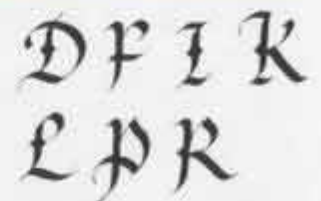 D F I K
L P R